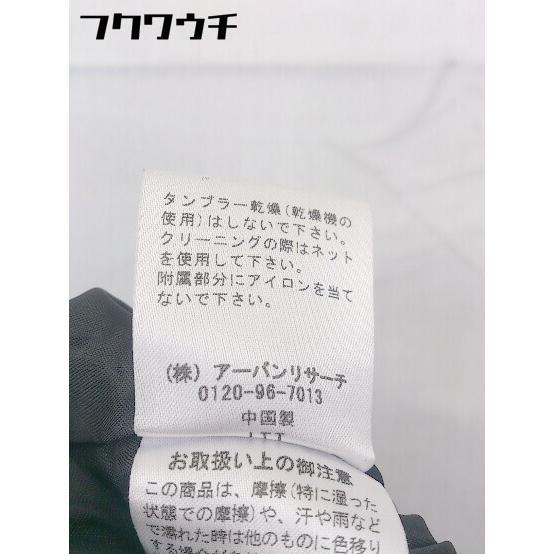 フクワウチ
タンブラー乾燥(乾燥機の
使用)はしないで下さい。
クリーニングの際はネット
を使用して下さい。
附属部分にアイロンを当て
ないで下さい。
(株) アーバンリサーチ
0120-96-7013
中国製
お取扱い上の御注意
この商品は、摩擦(特に湿った
状態での摩擦)や、汗や雨など
で濡れた時は他のものに色移り
する場合が